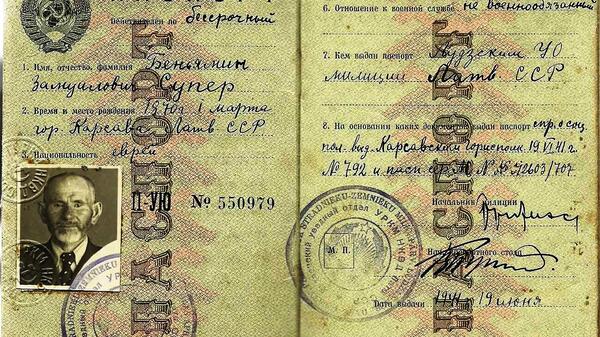 Действителен по бессрочный
1. Имя, отчество, фамилия Беньямин
Залманович Супер
2. Время и место рождения 1870 г 1 марта
гор. Карсава Латв ССР
3. Национальность еврей
П-УЮ № 550979
ПАСПОРТ
6. Отношение к военной службе не военнообязанный
7. Кем выдан паспорт Лудзским УО
милиции Латв ССР
8. На основании каких документов выдан паспорт спр о соц
пол. выд Карсавским горисполк. 19.VI.41 г.
№ 792 и
Начальник милиции
стола
М. П.
Дата выдачи 1941 19 июня